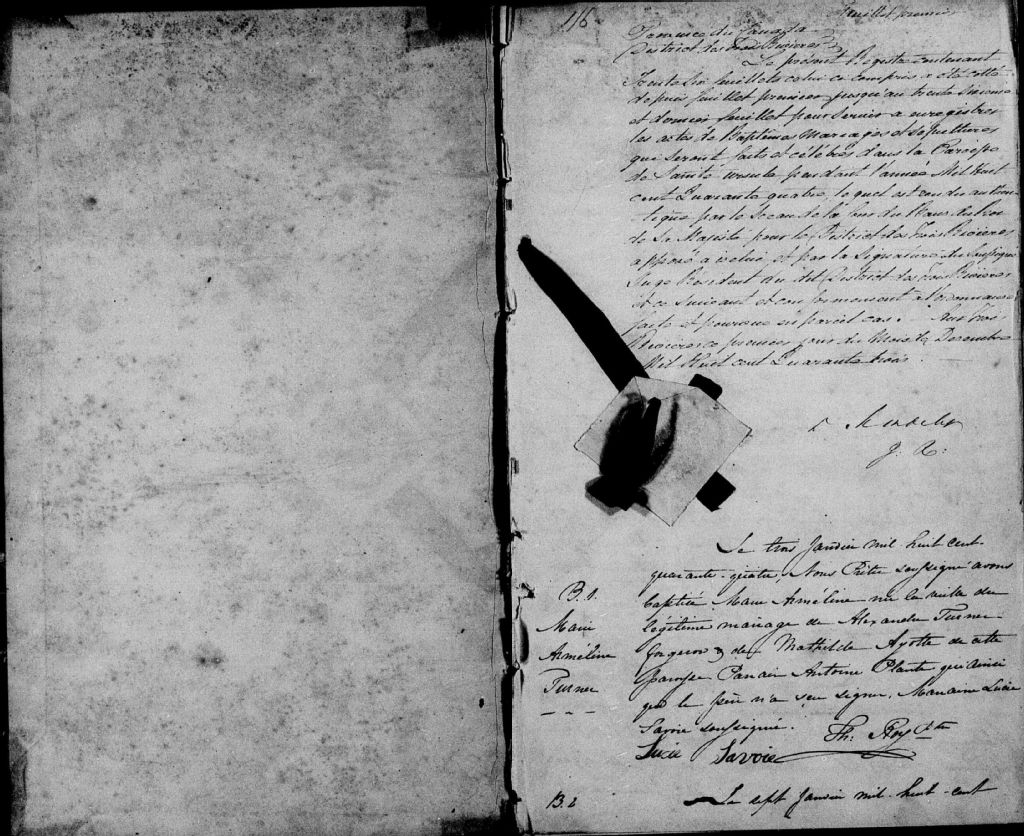 116
feuillet premier
Province du Canada
District des Trois Rivieres
Le présent Registre contenant
Trente Six feuillets celui ci compris a été cotté
depuis feuillet premier jusqu'au trente sixieme
et dernier feuillet pour servir a enregistrer
les actes de Baptêmes Mariages et Sepultures
qui seront faits et célébrés dans la Paroisse
de Sainte Ursule pendant l'année Mil Huit
cent Quarante quatre, lequel est rendu authen-
tique par le Sceau de la Cour du Banc
de Sa Majesté pour le District des Trois Rivieres
apposé a icelui et par la Signature du Soussigné
Juge Résident du dit District des Trois Rivieres
et ce suivant et conformement a l'ordonnance
faite et pourvue en pareil cas. Aux Trois
Rivieres ce premier jour du Mois de Decembre
Mil Huit cent Quarante trois.
Le trois Janvier mil huit cent
quarante-quatre, Nous Prêtre soussigné avons
B. 1.
baptisé Marie Arméline née la veille du
Marie
légitime mariage de Alexandre Turner
Arméline
forgeron & de Mathilde Ayotte de cette
Turner
paroisse Parain Antoine Plante qui ainsi
que le père n'a seu signer, Maraine Lucie
Savoie soussigné.
Th: Roy Ptre
Lucie Savoie
B. 2
Le sept Janvier mil-huit-cent